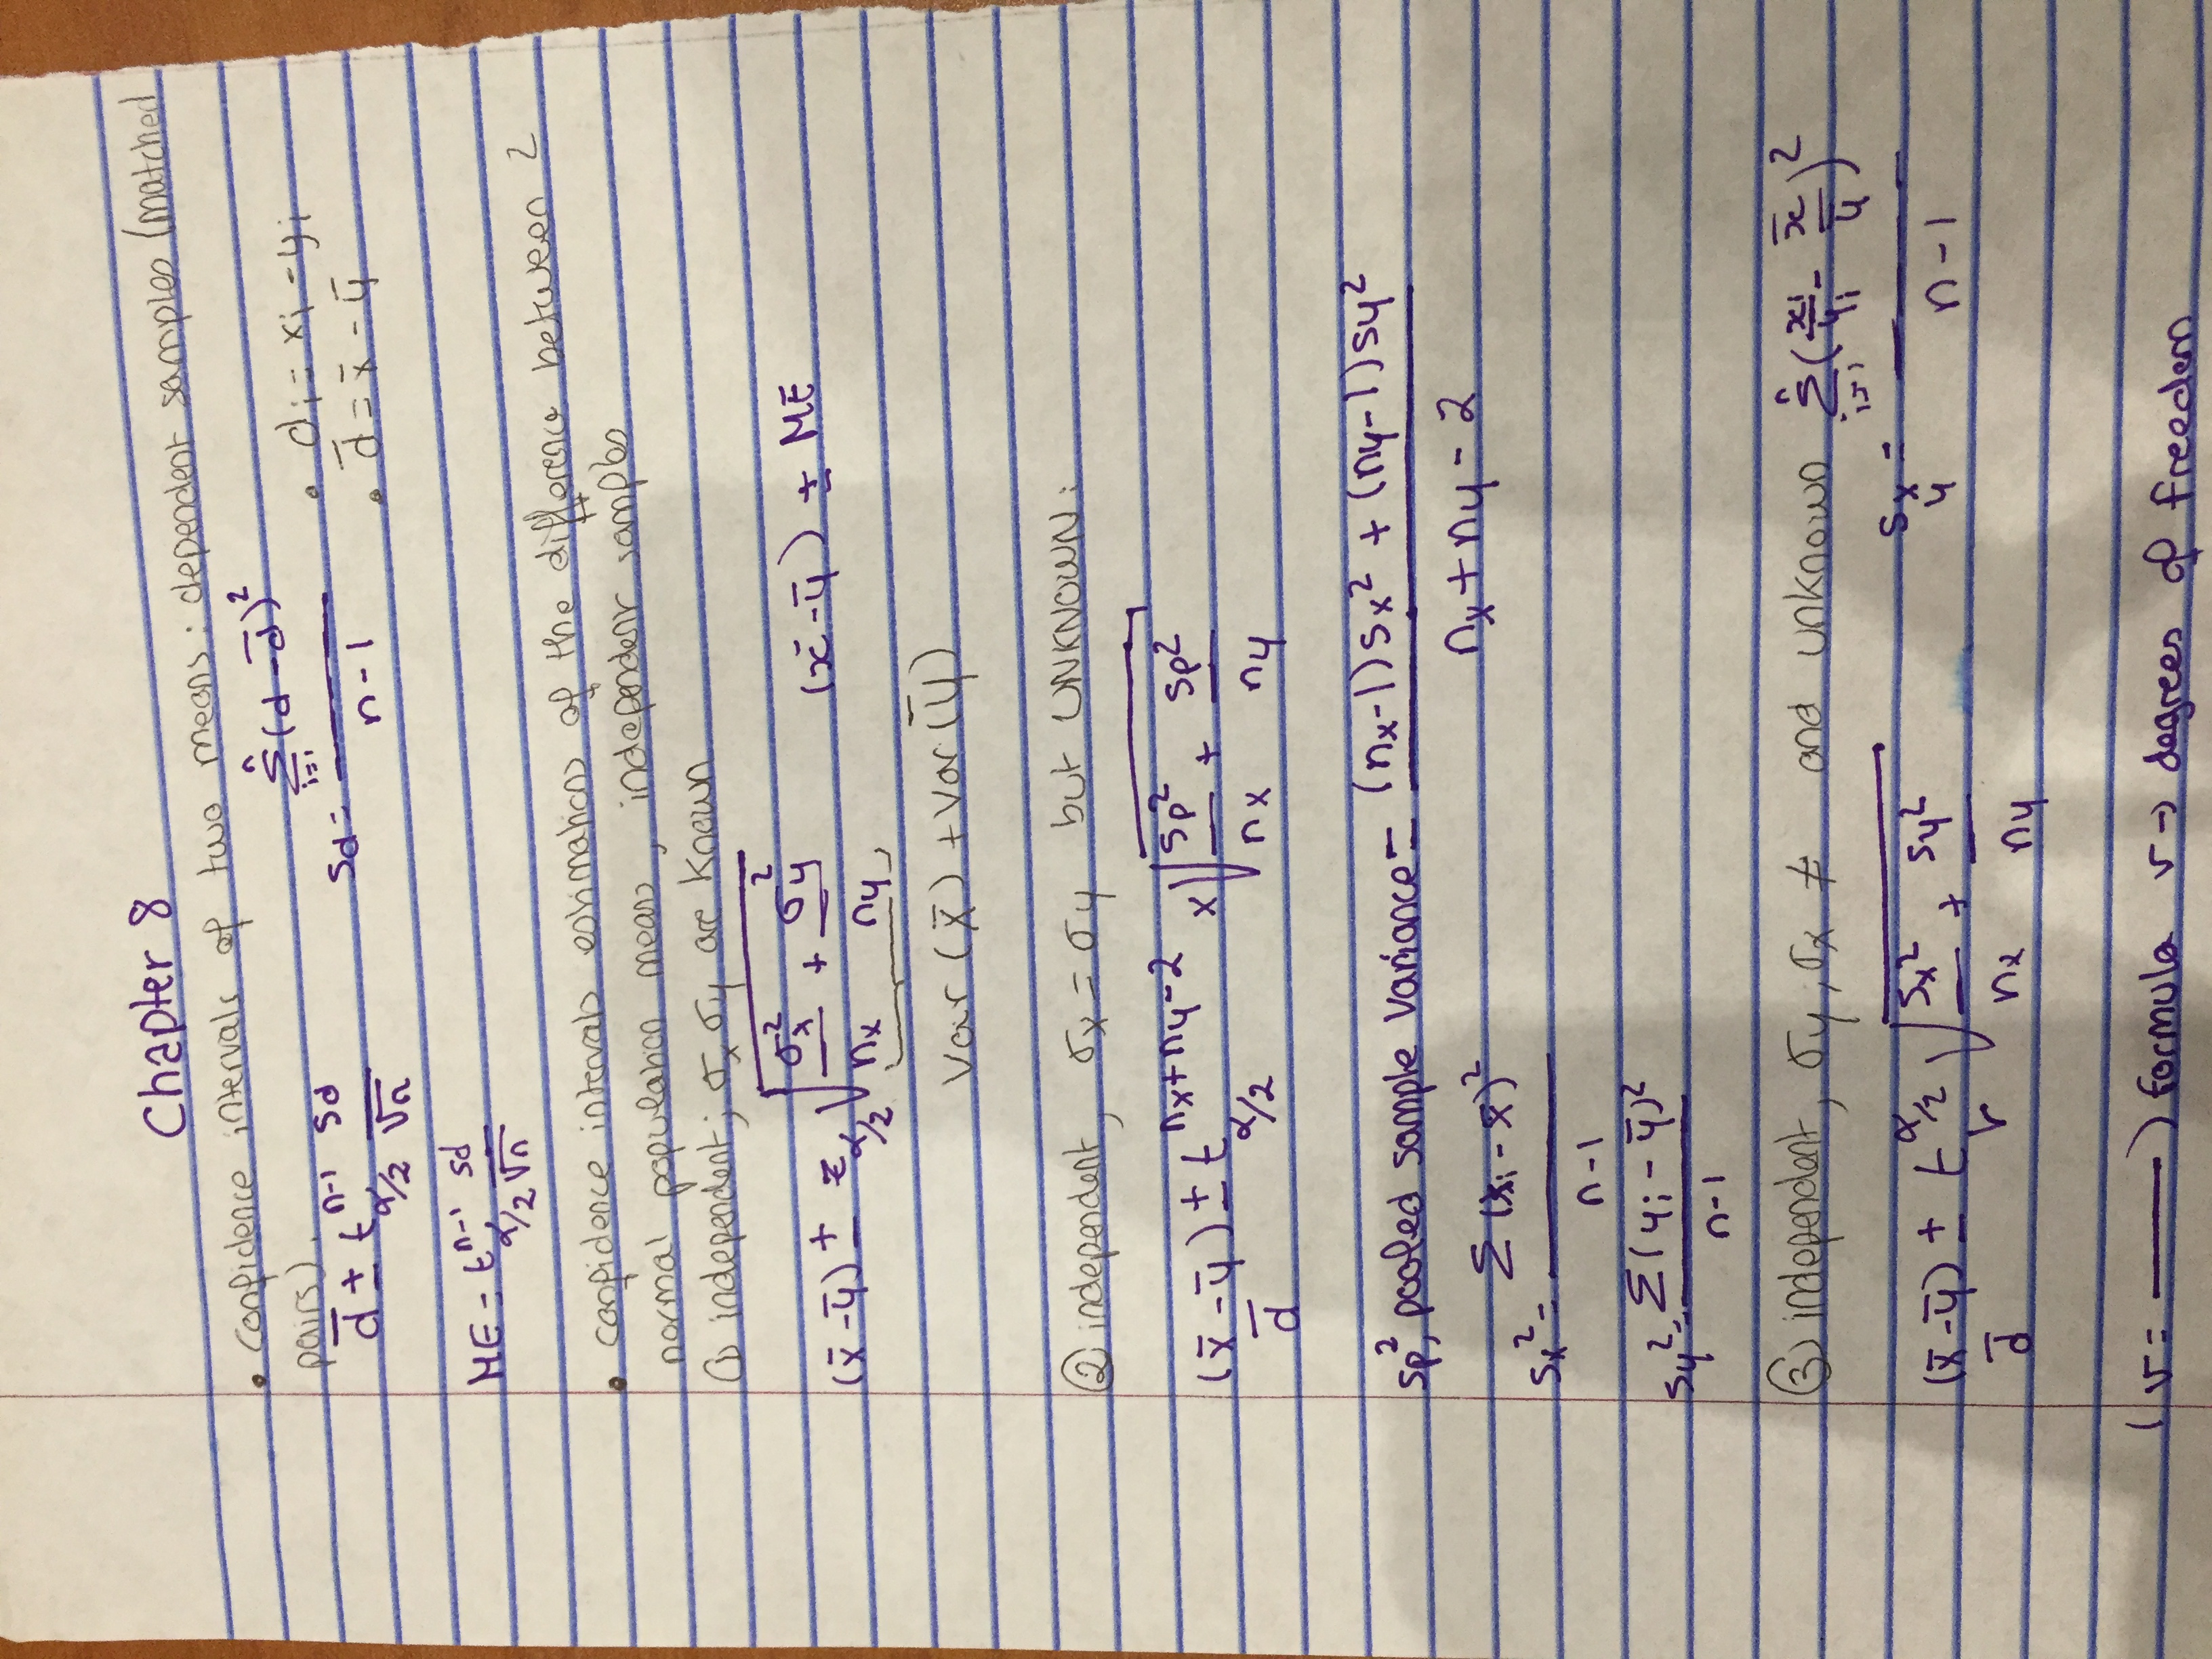 Chapter 8
• confidence intervals of two means: dependent samples (matched
pairs).
d̄ ± t^{n-1}_{α/2} sd/√n
sd = Σ^{n}_{i=1} (d - d̄)² / n-1
• di = xi - yi
• d̄ = x̄ - ȳ
ME = t^{n-1}_{α/2} sd/√n
• confidence intervals estimations of the difference between 2
normal population means, independent samples
① independent; σx, σy are known
(x̄ - ȳ) ± z_{α/2} √(σx²/nx + σy²/ny)
(x̄ - ȳ) ± ME
Var(x̄) + Var(ȳ)
② independent, σx = σy but UNKNOWN:
(x̄ - ȳ) ± t^{nx+ny-2}_{α/2} x √(sp²/nx + sp²/ny)
d̄
sp², pooled sample variance = (nx-1)sx² + (ny-1)sy² / nx + ny - 2
sx² = Σ(xi - x̄)² / n-1
sy² = Σ(yi - ȳ)² / n-1
③ independent, σy, σx ≠ and unknown
s x/y = Σ^{n}_{i=1} (xi/yi - x̄/ȳ)² / n-1
(x̄ - ȳ) ± t^{α/2}_{v} √(sx²/nx + sy²/ny)
d̄
(v = ——) formula v → degrees of freedom